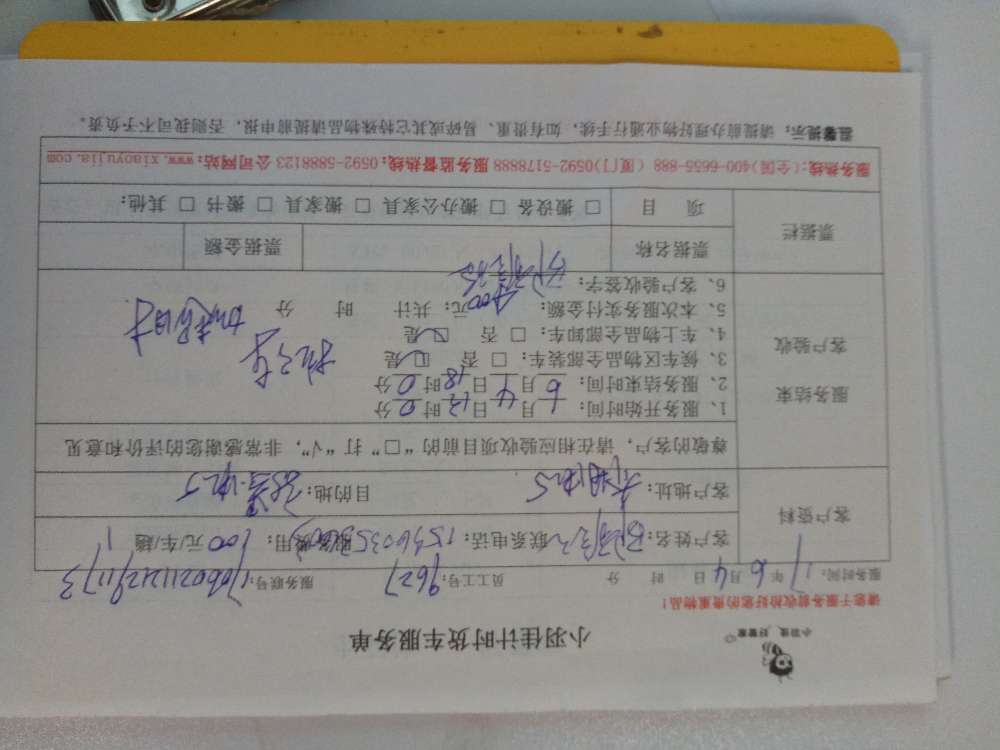 小羽佳 好管家
小羽佳计时货车服务单
请您于服务前收拾好您的贵重物品!
服务时间: 17 年 6 月 4 日 时 分 员工工号: 9627 服务联号:
客户资料
客户姓名: 联系电话: 服务费用: 100 元/车/趟
客户地址: 目的地:
尊敬的客户, 请在相应验收项目前的“□”打“√”, 非常感谢您的评价和意见
服务结束
客户验收
1、服务开始时间: 6 月 4 日 12 时 0 分
2、服务结束时间: 6 月 4 日 18 时 0 分
3、候车区物品全部装车: □ 否 ☑ 是
4、车上物品全部卸车: □ 否 ☑ 是
5、本次服务实付金额: 400 元; 共计 时 分
6、客户验收签字:
票据栏
票据名称 票据金额
项 目 □ 搬设备 □ 搬办公家具 □ 搬家具 □ 搬书 □ 其他:
服务热线:(全国)400-6655-888 (厦门)0592-5178888 服务监督热线: 0592-5888123 公司网站: www.xiaoyujia.com
温馨提示: 请提前办理好物业通行手续, 如有贵重、易碎或其它特殊物品请提前申报, 否则我司不予负责。